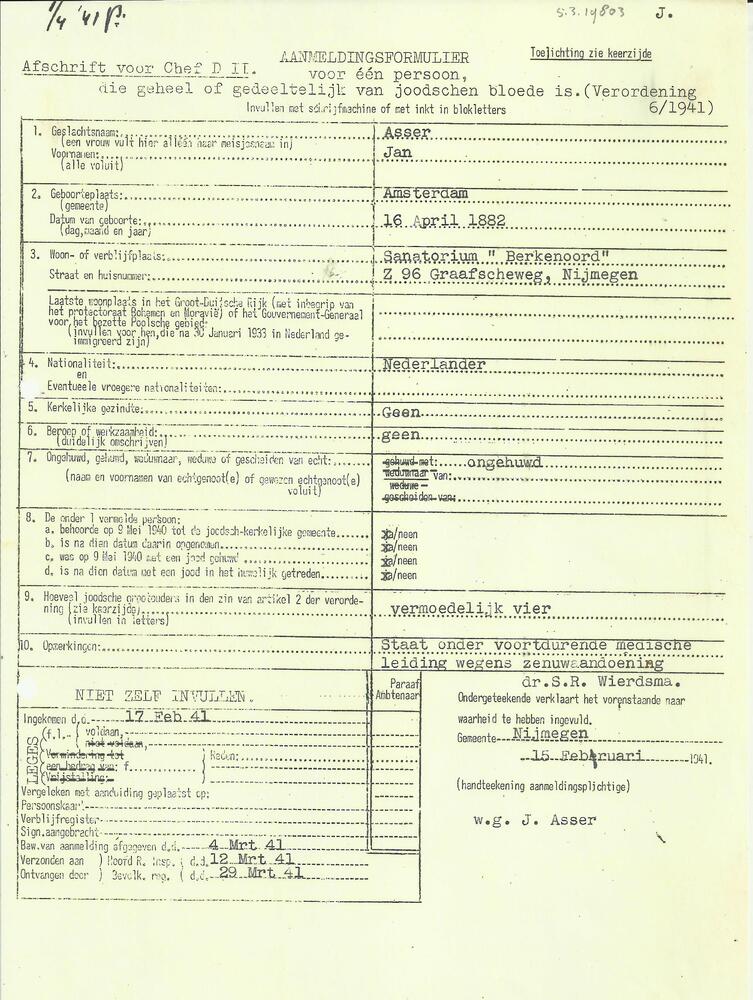 1/4 '41
5.3.19803 J.
Toelichting zie keerzijde
AANMELDINGSFORMULIER
Afschrift voor Chef D II.
voor één persoon,
die geheel of gedeeltelijk van joodschen bloede is.(Verordening
6/1941)
Invullen met schrijfmachine of met inkt in blokletters
1. Geslachtsnaam: Asser
(een vrouw vult hier alléén haar meisjesnaam in)
Voornamen: Jan
(alle voluit)
2. Geboorteplaats: Amsterdam
(gemeente)
Datum van geboorte: 16 April 1882
(dag, maand en jaar)
3. Woon- of verblijfplaats: Sanatorium " Berkenoord"
Straat en huisnummer: Z 96 Graafscheweg, Nijmegen
Laatste woonplaats in het Groot-Duitsche Rijk (met inbegrip van
het protectoraat Bohemen en Moravië) of het Gouvernement-Generaal
voor het bezette Poolsche gebied:
(invullen voor hen, die na 30 Januari 1933 in Nederland ge-
immigreerd zijn)
4. Nationaliteit: Nederlander
en
Eventueele vroegere nationaliteiten:
5. Kerkelijke gezindte: Geen
6. Beroep of werkzaamheid: geen
(duidelijk omschrijven)
7. Ongehuwd, gehuwd, weduwnaar, weduwe of gescheiden van echt: gehuwd met: ongehuwd
(naam en voornamen van echtgenoot(e) of gewezen echtgenoot(e)
voluit)
weduwnaar van:
weduwe
gescheiden van:
8. De onder 1 vermelde persoon:
a. behoorde op 9 Mei 1940 tot de joodsch-kerkelijke gemeente ja/neen
b. is na dien datum daarin opgenomen ja/neen
c. was op 9 Mei 1940 met een jood gehuwd ja/neen
d. is na dien datum met een jood in het huwelijk getreden ja/neen
9. Hoeveel joodsche grootouders in den zin van artikel 2 der verorde-
ning (zie keerzijde) vermoedelijk vier
(invullen in letters)
10. Opmerkingen: Staat onder voortdurende medische
leiding wegens zenuwaandoening
dr.S.R. Wierdsma.
Paraaf
Ambtenaar
NIET ZELF INVULLEN.
Ingekomen d.d. 17 Feb 41
LEGES
(f.1.- voldaan,
niet voldaan,
Vermindering tot
een bedrag van: f.
(Vrijstelling:
Reden:
Vergeleken met aanduiding geplaatst op:
Persoonskaart
Verblijfregister
Sign.aangebracht
Bew.van aanmelding afgegeven d.d. 4 Mrt 41
Verzonden aan ) Hoofd R. Insp. ( d.d. 12 Mrt 41
Ontvangen door ) Bevolk. reg. ( d.d. 29 Mrt 41
Ondergeteekende verklaart het vorenstaande naar
waarheid te hebben ingevuld.
Gemeente Nijmegen
15 Februari 1941.
(handteekening aanmeldingsplichtige)
w.g. J. Asser